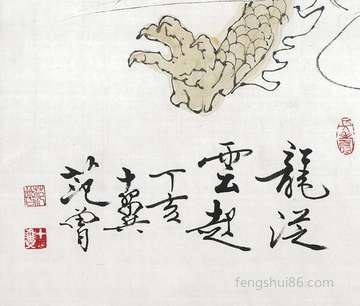 龍從
雲起
丁亥
十翼
范曾
fengshui86.com